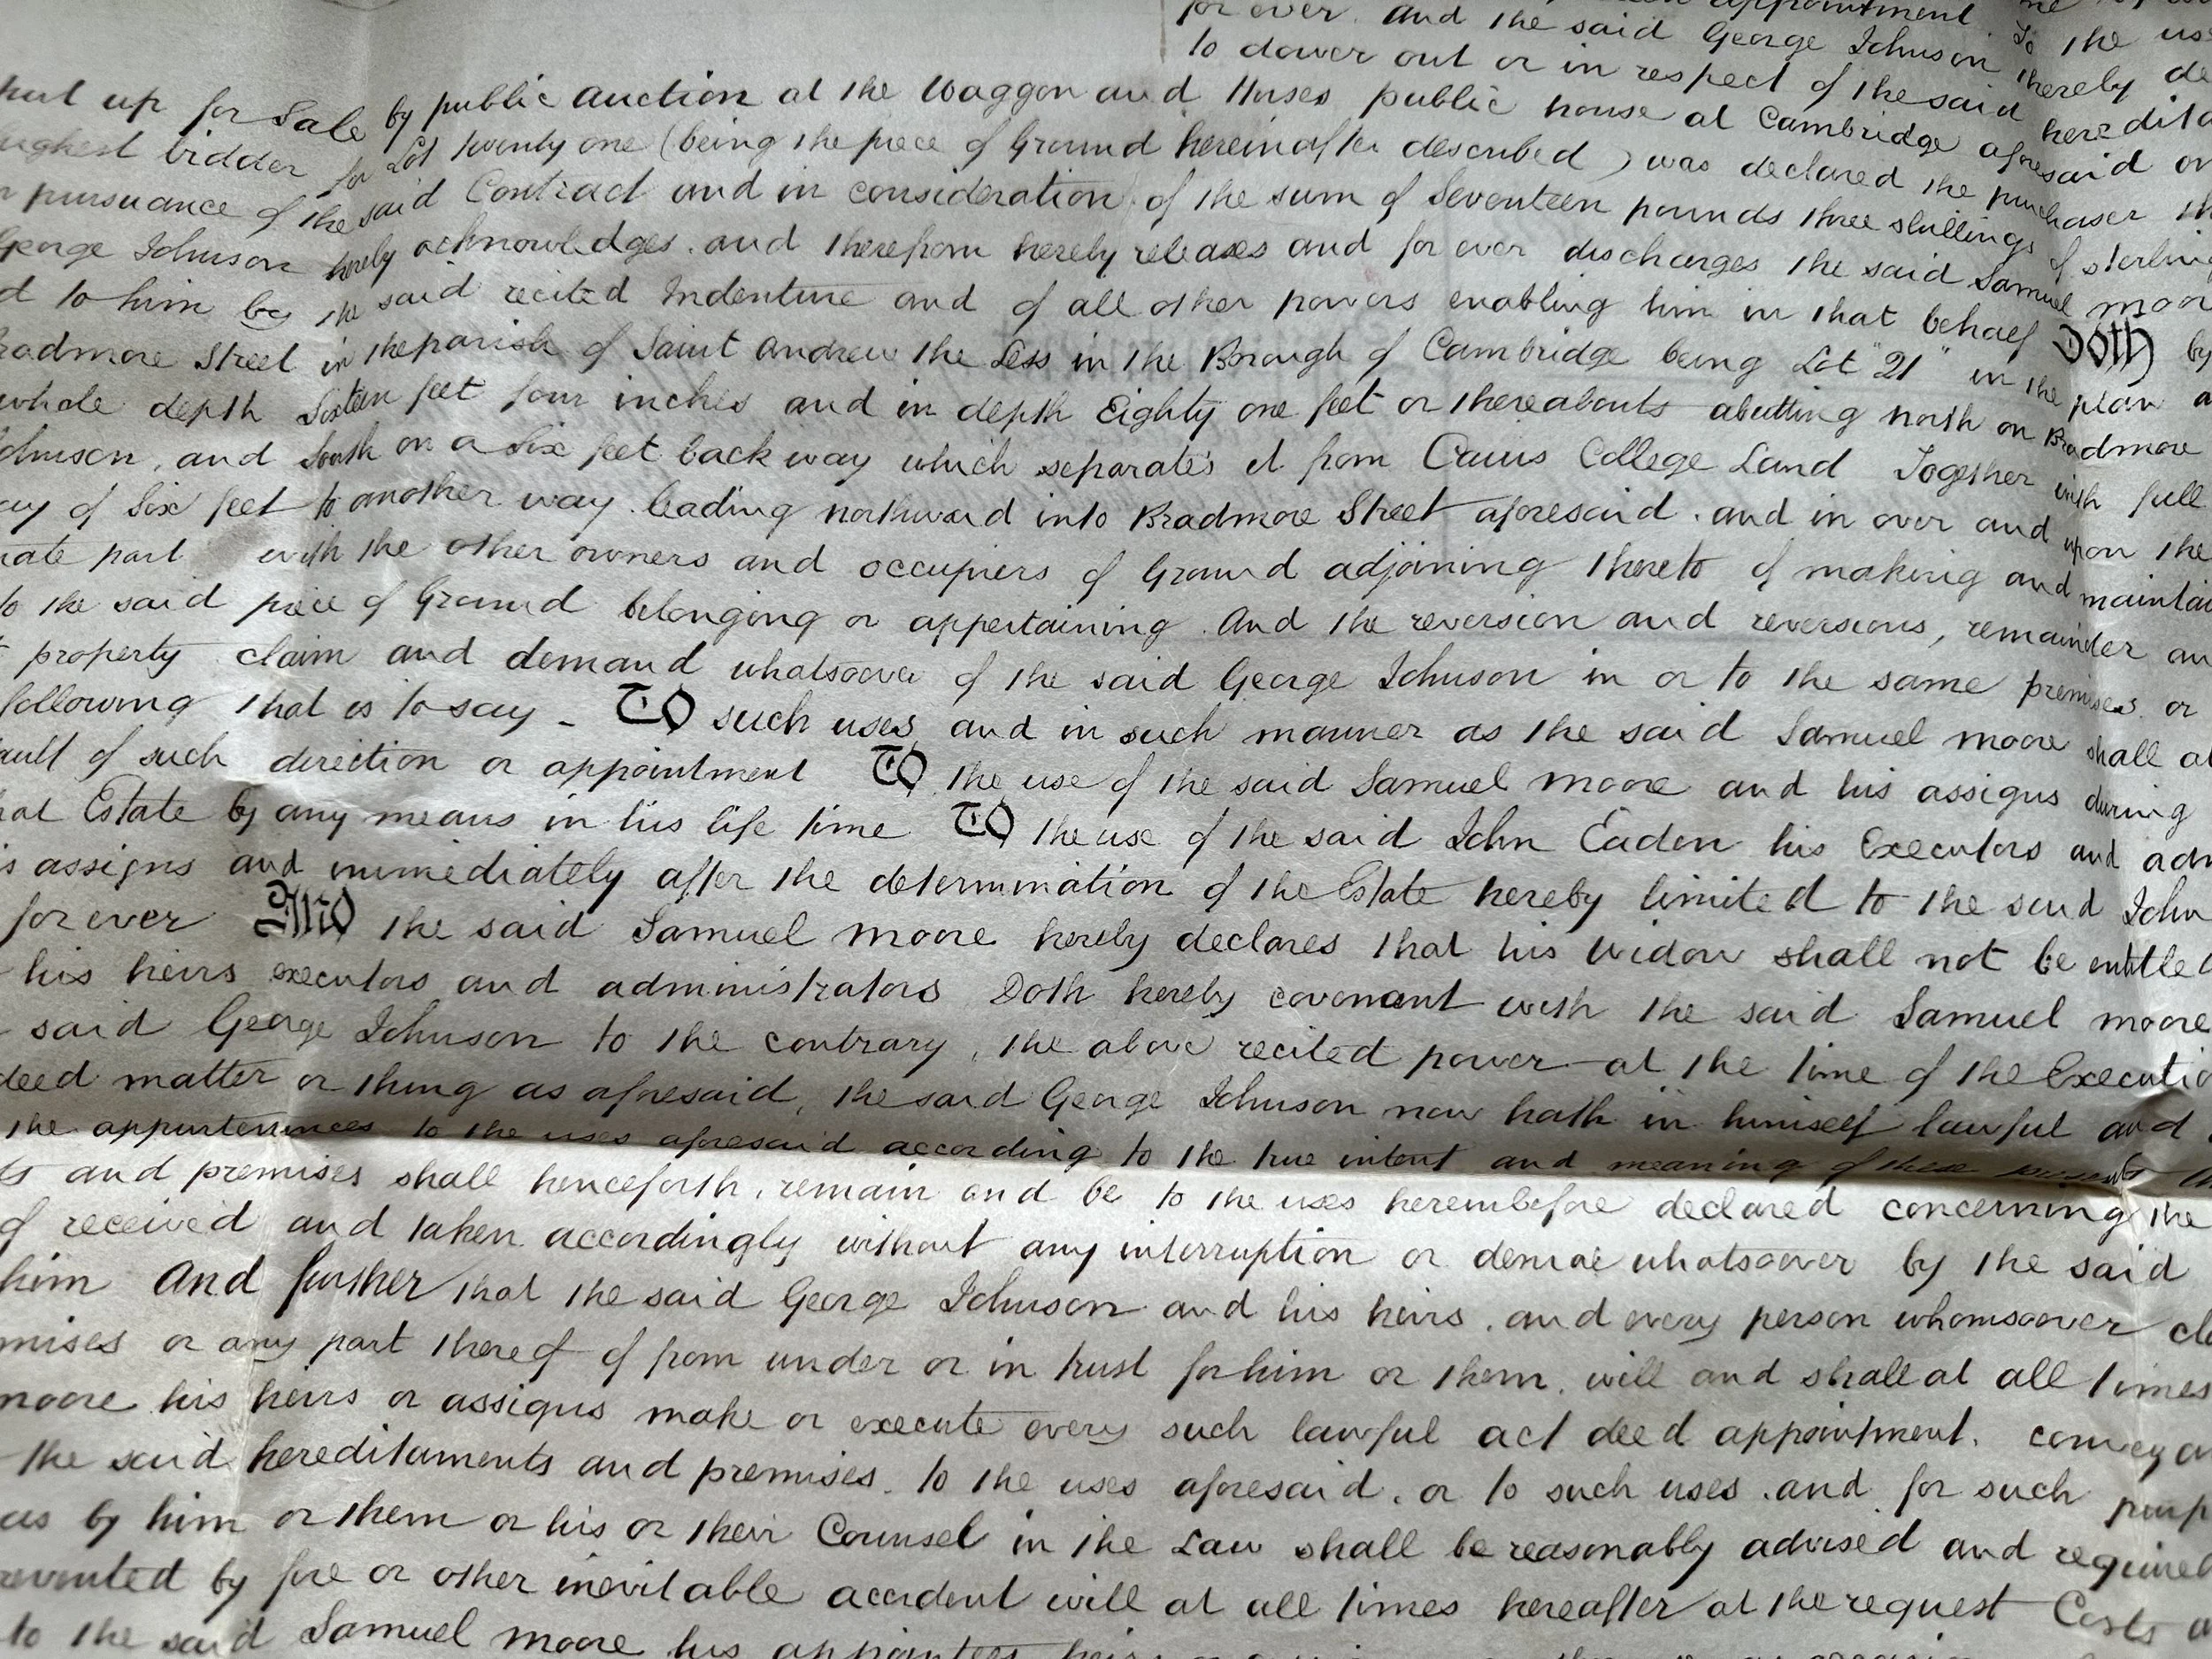 appointment
for ever. And the said George Johnson To the use
to dower out or in respect of the said thereby de
put up for Sale by public auction at the Waggon and Horses public house at Cambridge aforesaid on
highest bidder for Lot twenty one (being the piece of Ground hereinafter described) was declared the purchaser
pursuance of the said Contract and in consideration of the sum of Seventeen pounds three shillings of sterling
George Johnson hereby acknowledges. and therefrom hereby releases and for ever discharges the said Samuel moore
d to him by the said recited Indenture and of all other powers enabling him in that behalf Doth by
radmore Street in the parish of Saint Andrew the Less in the Borough of Cambridge being Lot "21" in the plan
whole depth Sixteen feet four inches and in depth Eighty one feet or thereabouts abutting north on Bradmore
ohnson, and South on a Six feet back way which separates it from Caius College Land Together with full
ay of Six feet to another way leading northward into Bradmore Street aforesaid. and in over and upon the
nate part with the other owners and occupiers of Ground adjoining thereto of making and maintai
to the said piece of Ground belonging or appertaining. And the reversion and reversions, remainder an
property claim and demand whatsoever of the said George Johnson in or to the same premises. or
following that is to say - To such uses and in such manner as the said Samuel moore shall at
ault of such direction or appointment To the use of the said Samuel moore and his assigns during
hat Estate by any means in his life time To the use of the said John Eaden his Executors and adm
is assigns and immediately after the determination of the Estate hereby limited to the said John
for ever And the said Samuel moore hereby declares that his widow shall not be entitled
his heirs executors and administrators Doth hereby covenant with the said Samuel moore
said George Johnson to the contrary, the above recited power at the time of the Executio
deed matter or thing as aforesaid, the said George Johnson now hath in himself lawful and
the appurtenances to the uses aforesaid according to the true intent and meaning of these presents
ts and premises shall henceforth, remain and be to the uses hereinbefore declared concerning the
of received and taken accordingly without any interruption or denial whatsoever by the said
him And further that the said George Johnson and his heirs, and every person whomsoever cla
mises or any part thereof of from under or in trust for him or them, will and shall at all times
moore his heirs or assigns make or execute every such lawful act deed appointment, convey
the said hereditaments and premises, to the uses aforesaid, or to such uses, and for such purp
as by him or them or his or their Counsel in the Law shall be reasonably advised and required
revented by fire or other inevitable accident will at all times hereafter at the request Costs
to the said Samuel moore his appointees heirs